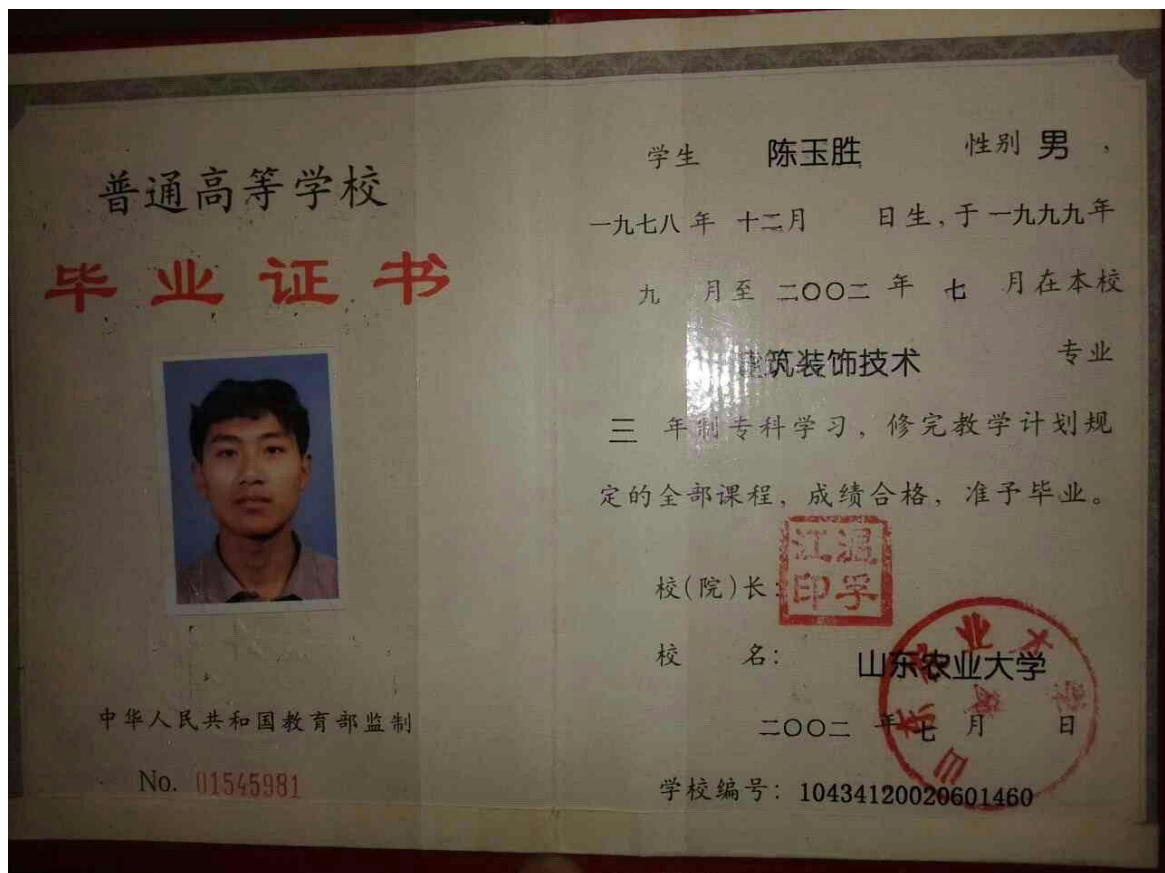 普通高等学校
毕业证书
中华人民共和国教育部监制
No. 01545981
学生 陈玉胜 性别 男,
一九七八年 十二月 日生,于一九九九年
九 月至 二〇〇二 年 七 月在本校
建筑装饰技术 专业
三 年制专科学习,修完教学计划规
定的全部课程,成绩合格,准予毕业。
校(院)长:
温孚江印
校 名: 山东农业大学
二〇〇二 年 七 月 日
山东农业大学
学校编号: 10434120020601460